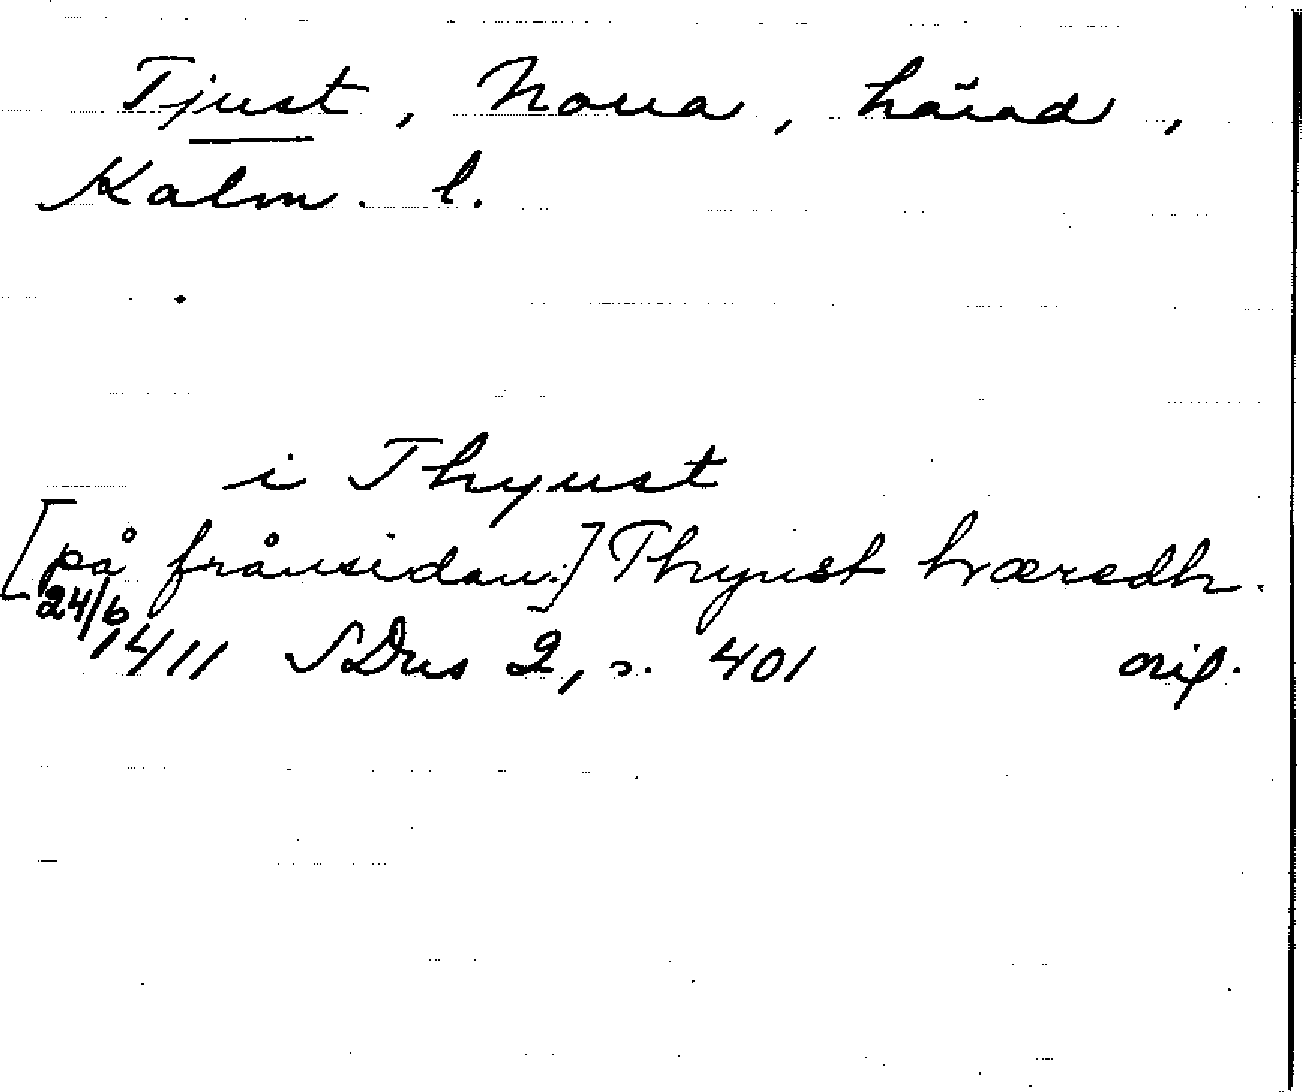 Tjust, Norra, härad,
Kalm. l.
i Thyust
[på frånsidan:] Thyust hværedh.
24/6
1411 SDns 2, s. 401 orig.